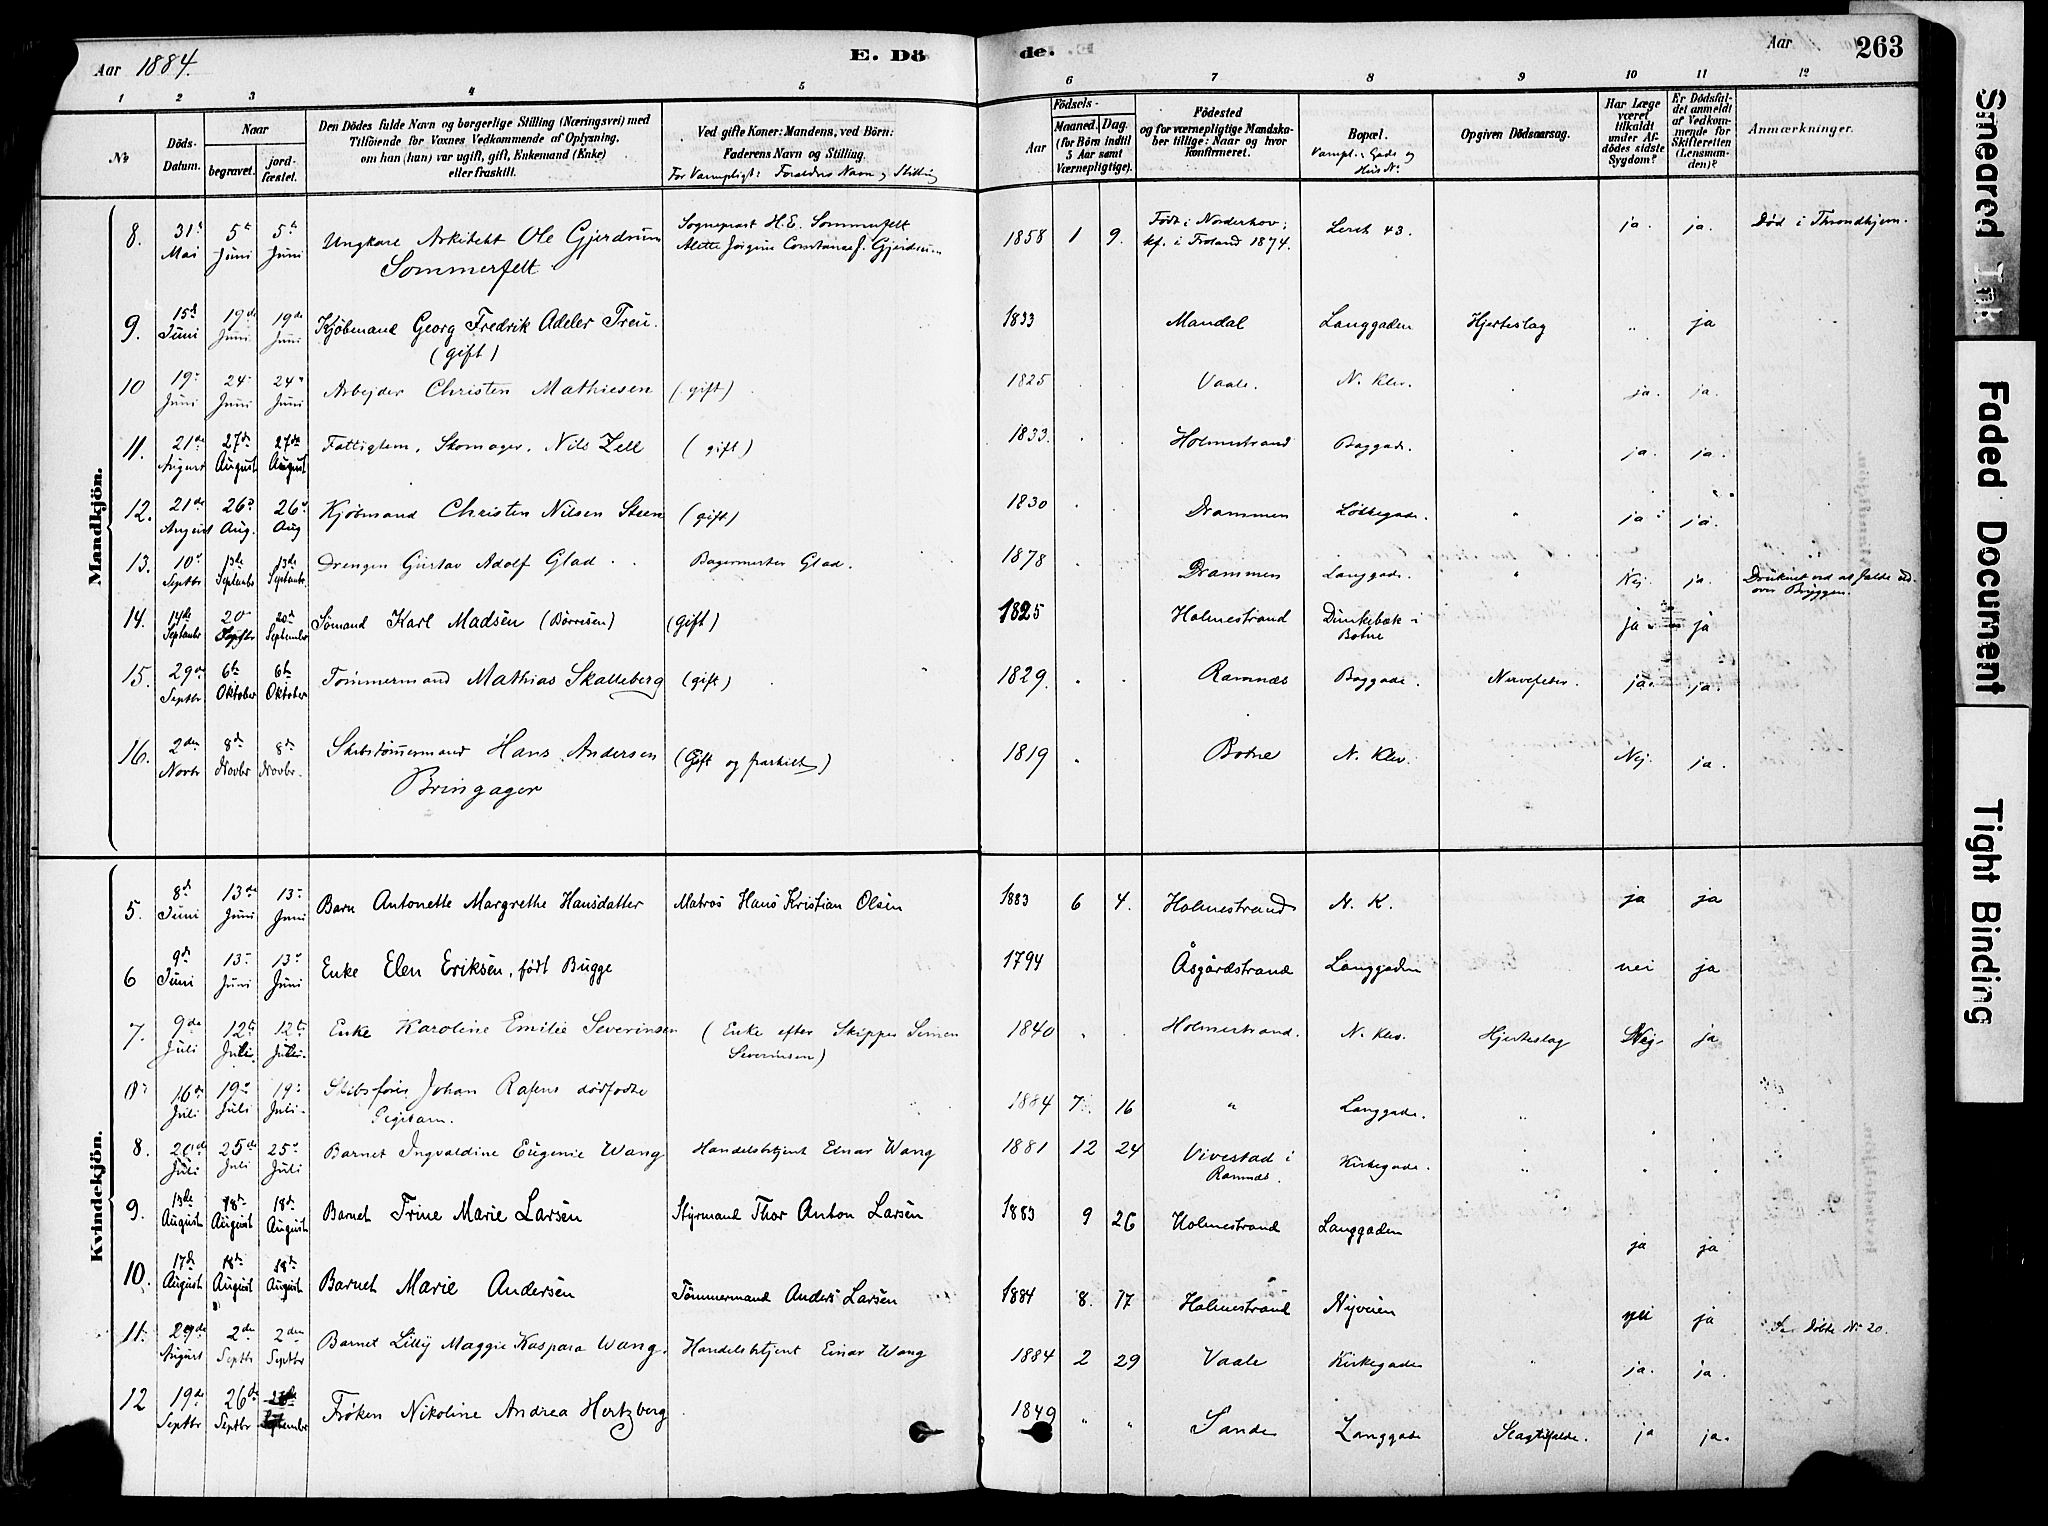 Aar 1884.
E. Dö
de.
Aar
263
1 2 3 4 5 6 7 8 9 10 11 12
No
Döds-Datum.
Naar
begravet.
jordfæstet.
Den Dödes fulde Navn og borgerlige Stilling (Næringsvei) med
Tilföiende for Voxnes Vedkommende af Oplysning,
om han (hun) var ugift, gift, Enkemand (Enke)
eller fraskilt.
Ved gifte Koner: Mandens, ved Börn:
Faderens Navn og Stilling.
For Værnepligt: Forældres Navn og Stilling
Födsels-
Aar
Maaned. Dag.
(for Börn indtil
5 Aar samt
Værnepligtige).
Födested
og for værnepligtige Mandskaber tillige: Naar og hvor
konfirmeret.
Bopæl.
Værnepl.: Gade og
Hus No
Opgiven Dödsaarsag.
Har Læge
været
tilkaldt
under Afdödes sidste
Sygdom?
Er Dödsfaldet anmeldt
af Vedkommende for
Skifteretten
(Lensmanden)?
Anmærkninger.
Mandkjön.
8. 31 Mai 5te Juni 5te Juni Ungkarl Arkitekt Ole Gjerdrum Sommerfelt Sogneprest H. E. Sommerfelt Alette Jörgine Constance f. Gjerdrum 1858 1 9. Födt i Norderhov; kf. i Froland 1874. Lerst 43. ja. ja. Död i Throndhjem.
9. 15d Juni 19de Juni 19de Juni Kjöbmand Georg Fredrik Adeler Treu. (gift) 1833 Mandal Langgaden Hjerteslag " ja
10 19 Juni 24 Juni 24 Juni Arbejder Christen Mathiesen (gift) 1825 Vaale. N. Klev. ja. ja.
11. 21de August 27de August 27de August Fattiglem, Skomager, Nils Zell (gift) 1833. Holmestrand Baggade. ja. ja.
12. 21de August 26 Aug. 26 Aug Kjöbmand Christen Nilsen Steen (gift) 1830 Drammen Løkkegade. " ja ja.
13. 10 Septbr 13de Septembr 13de Septembr. Drengen Gustav Adolf Glad. Bagermester Glad. 1878 Drammen Langgade. " Nej. ja. Druknet ved at falde ud over Bryggen.
14. 14de Septembr 20 Septbr 20de September Sömand Karl Madsen (Börresen) (gift) 1825 Holmestrand Dunkebæk i Botne ja ja
15. 29de Septbr 6te Oktober 6te Oktober Tömmermand Mathias Skalleberg (gift) 1829. Ramnæs Baggade. Nervefeber. ja. ja.
16. 2den Novbr 8de Novbr 8de Novbr. Skibstömmermand Hans Andersen Bringager (Gift og fraskilt) 1819 " Botne N. Klev. Nej. ja.
Kvindekjön.
5. 8de Juni 13de Juni 13 Juni Barn Antonette Margrethe Hansdatter Matros Hans Kristian Olsen 1883 6 4. Holmestrand N. K. ja ja
6 9de Juni 13 Juni 13 Juni Enke Elen Eriksen, födt Bugge 1794 Åsgårdstrand Langgaden nei ja
7. 9de Juli 12te Juli. 12te Juli. Enke Karoline Emilie Severinsen (Enke efter Skipper Simen Severinsen) 1840 Holmestrand. N. Klev. Hjerteslag Nej. ja
0 16de Juli 19 Juli 19 Juli. Skibsförer Johan Rafens dödfödte Pigebarn. 1884 7. 16 " Langgade. "
8. 20de Juli 25de Juli 25 Juli Barnet Ingvaldine Eugenie Wang Handelsbetjent Einar Wang 1881 12 24 Vivestad i Ramnæs. Kirkegade. "
9. 13de August 18de August 18de August Barnet Trine Marie Larsen Styrmand Thor Anton Larsen 1883 9 26 Holmestrand Langgaden ja ja
10. 17de August 18de August 18de August Barnet Marie Andersen Tömmermand Anders Larsen 1884 8. 17 Holmestrand Nyveien nei ja
11. 29de August 2den Septbr 2den Septbr Barnet Lilly Maggie Kaspara Wang. Handelsbetjent Einar Wang 1884 2 29 Vaale Kirkegade " ja. ja. Se döbte No 20.
12 19de Septbr 26de Septbr September Fröken Nikoline Andrea Hertzberg 1849 " " Sande Langgade Slagtilfælde. ja ja.
Smeared Ink
Faded Document
Tight Binding